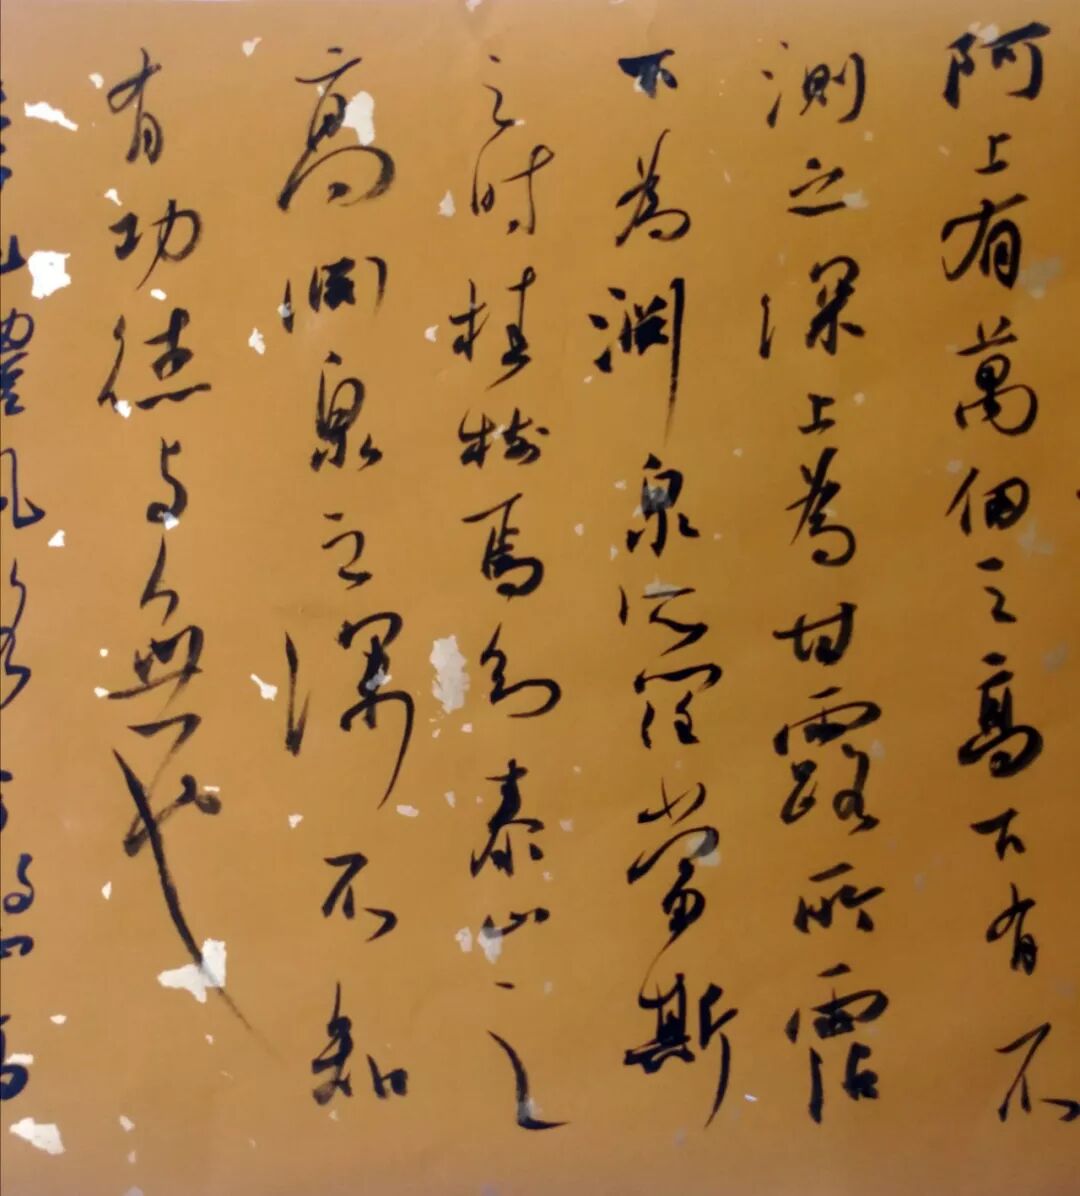 阿上有萬仞之高下有不
測之深上為甘露所霑
下為淵泉所潤當斯
之時桂樹焉知泰山之
高淵泉之深不知
有功德与無也